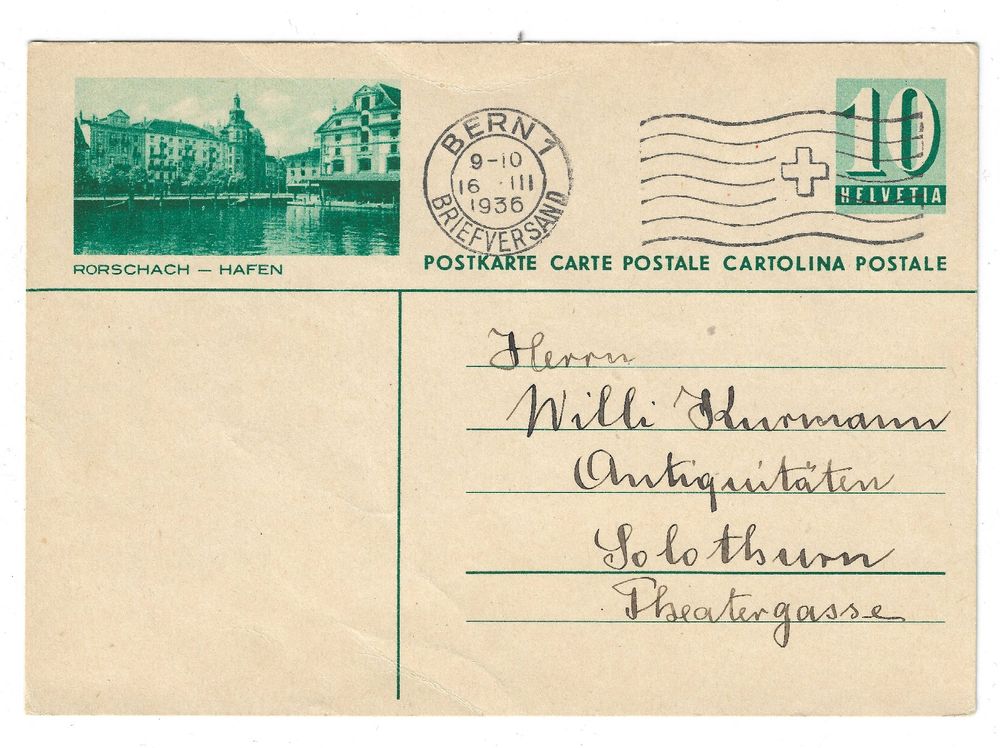 RORSCHACH — HAFEN
BERN 1
9-10
16 III
1936
BRIEFVERSAND
10
HELVETIA
POSTKARTE CARTE POSTALE CARTOLINA POSTALE
Herrn
Willi Kurmann
Antiquitäten
Solothurn
Theatergasse